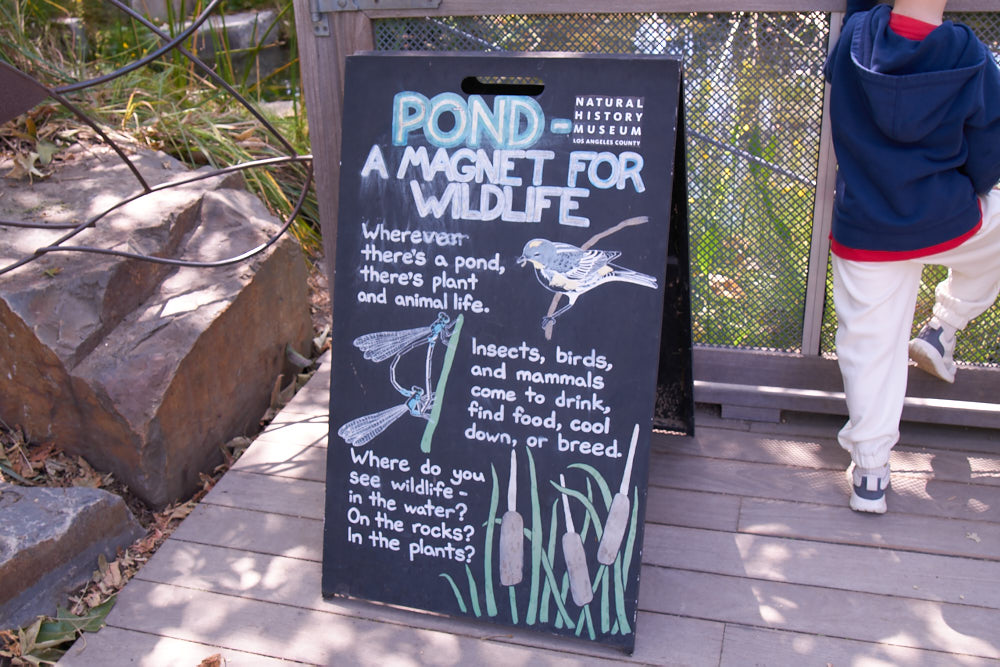 POND -
NATURAL
HISTORY
MUSEUM
LOS ANGELES COUNTY
A MAGNET FOR
WILDLIFE
Wherever
there's a pond,
there's plant
and animal life.
Insects, birds,
and mammals
come to drink,
find food, cool
down, or breed.
Where do you
see wildlife -
in the water?
On the rocks?
In the plants?